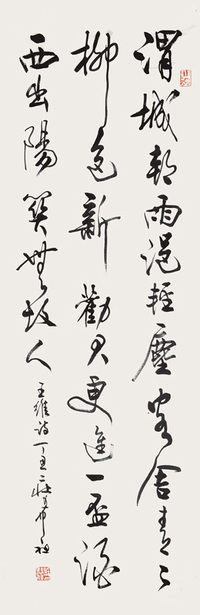 渭城朝雨浥輕塵客舍青々
柳色新勸君更進一盃酒
西出陽關無故人
王維詩